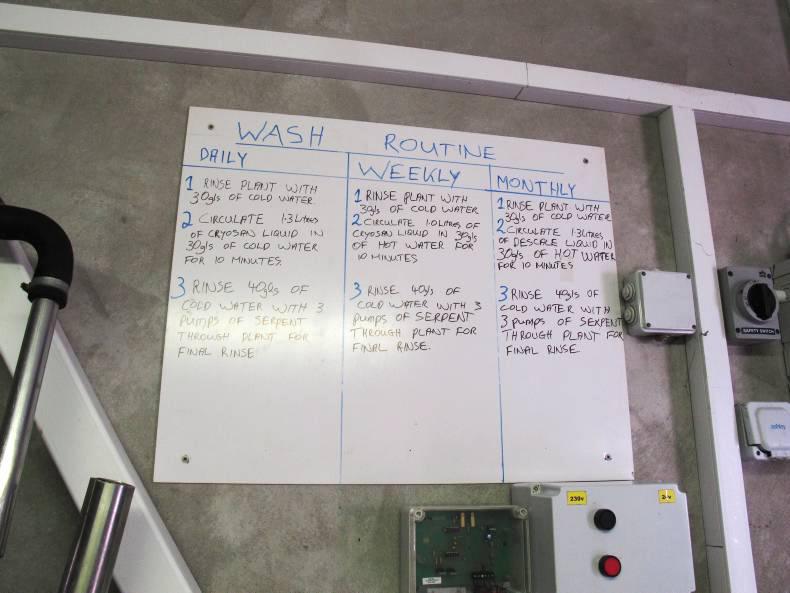 WASH ROUTINE
DAILY
1 RINSE PLANT WITH
30gls OF COLD WATER
2 CIRCULATE 1.3 Litres
OF CRYOSAN LIQUID IN
30gls OF COLD WATER
FOR 10 MINUTES.
3 RINSE 40gls OF
COLD WATER WITH 3
PUMPS OF SERPENT
THROUGH PLANT FOR
FINAL RINSE
WEEKLY
1 RINSE PLANT WITH
30gls OF COLD WATER
2 CIRCULATE 1.0 Litres OF
CRYOSAN LIQUID IN 30gls
OF HOT WATER FOR
10 MINUTES
3 RINSE 40gls OF
COLD WATER WITH 3
PUMPS OF SERPENT
THROUGH PLANT FOR
FINAL RINSE.
MONTHLY
1 RINSE PLANT WITH
30gls OF COLD WATER
2 CIRCULATE 1.3 Litres
OF DESCALE LIQUID IN
30gls OF HOT WATER
FOR 10 MINUTES
3 RINSE 40gls OF
COLD WATER WITH
3 PUMPS OF SERPENT
THROUGH PLANT FOR
FINAL RINSE
SAFETY SWITCH
ashley
230v
24v